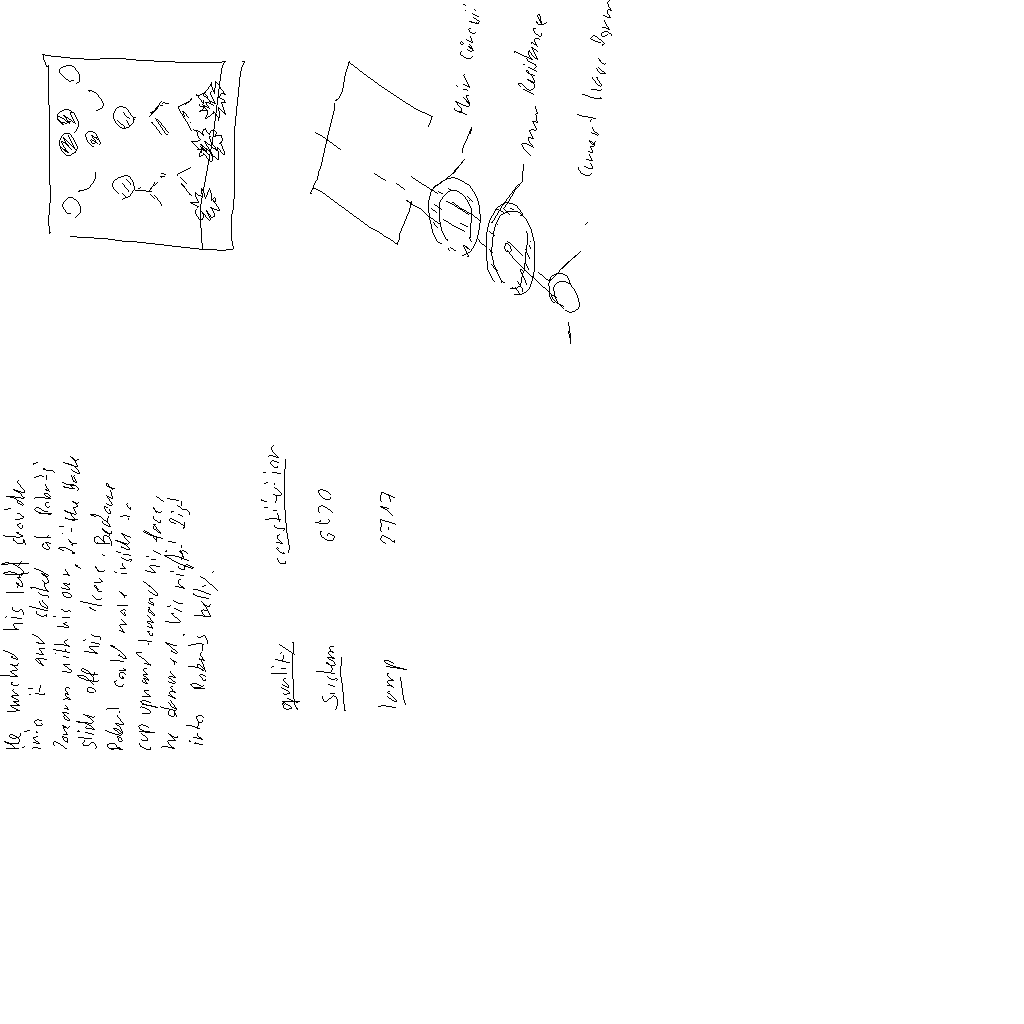 He hunched his left shoulder
into it and slashed at Robert's
forearm with his own, let the blade
slide off his sleeve. Because
Robert could make inside to
cup upward toward his face,
he hammered his right fist
into Robert's belly.
quality constitution
System 6t70
lamp 2717
Main Circuit
mm Resistance
Current